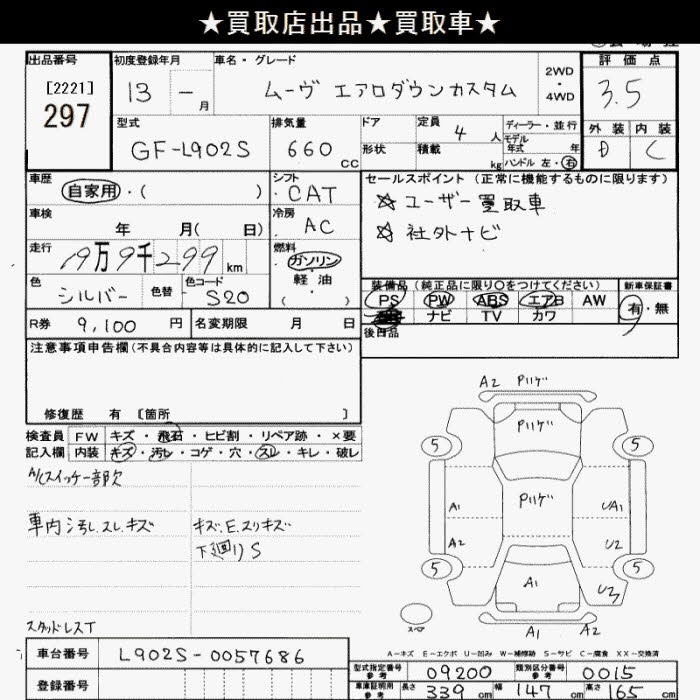 ★買取店出品★買取車★
出品番号
[2221]
297
初度登録年月
13 - 月
車名・グレード
ムーヴ エアロダウンカスタム
2WD
・
4WD
評価点
3.5
外装 内装
D C
型式
GF-L902S
排気量
660 CC
ドア
形状
定員 4 人
積載 kg
ディーラー・並行
モデル年式 年
ハンドル 左・右
車歴
自家用・( )
シフト
CAT
セールスポイント (正常に機能するものに限ります)
☆ユーザー買取車
☆社外ナビ
車検
年 月( 日)
冷房
AC
走行
19万9千299 km
燃料
ガソリン
・
軽油
( )
色
シルバー
色替
色コード
S20
装備品 (純正品に限り○をつけてください)
PS PW ABS エアB AW
ナビ TV カワ
新車保証書
有・無
R券 9,100 円
名変期限 月 日
後日品
注意事項申告欄 (不具合内容等は具体的に記入して下さい)
修復歴 有 〔箇所 〕
検査員 FW キズ・飛石・ヒビ割・リペア跡・×要
記入欄 内装 キズ・汚レ・コゲ・穴・スレ・キレ・破レ
A/Cスイッチ一部欠
車内汚レ.スレ.キズ
キズ.E.スリキズ
下廻りS
スタッドレスT
A2 Pハゲ
Pハゲ
5 5
Pハゲ
A1 UA1
A2 U2
5 5
A1 U3
スペア
A1 A2
A-キズ E-エクボ U-凹み W-補修跡 S-サビ C-腐食 XX-交換済
車台番号 L902S-0057686
登録番号
型式指定番号 参考 09200
類別区分番号 参考 0015
車庫証明用 参考 長さ 339 cm 幅 147 cm 高さ 165 cm